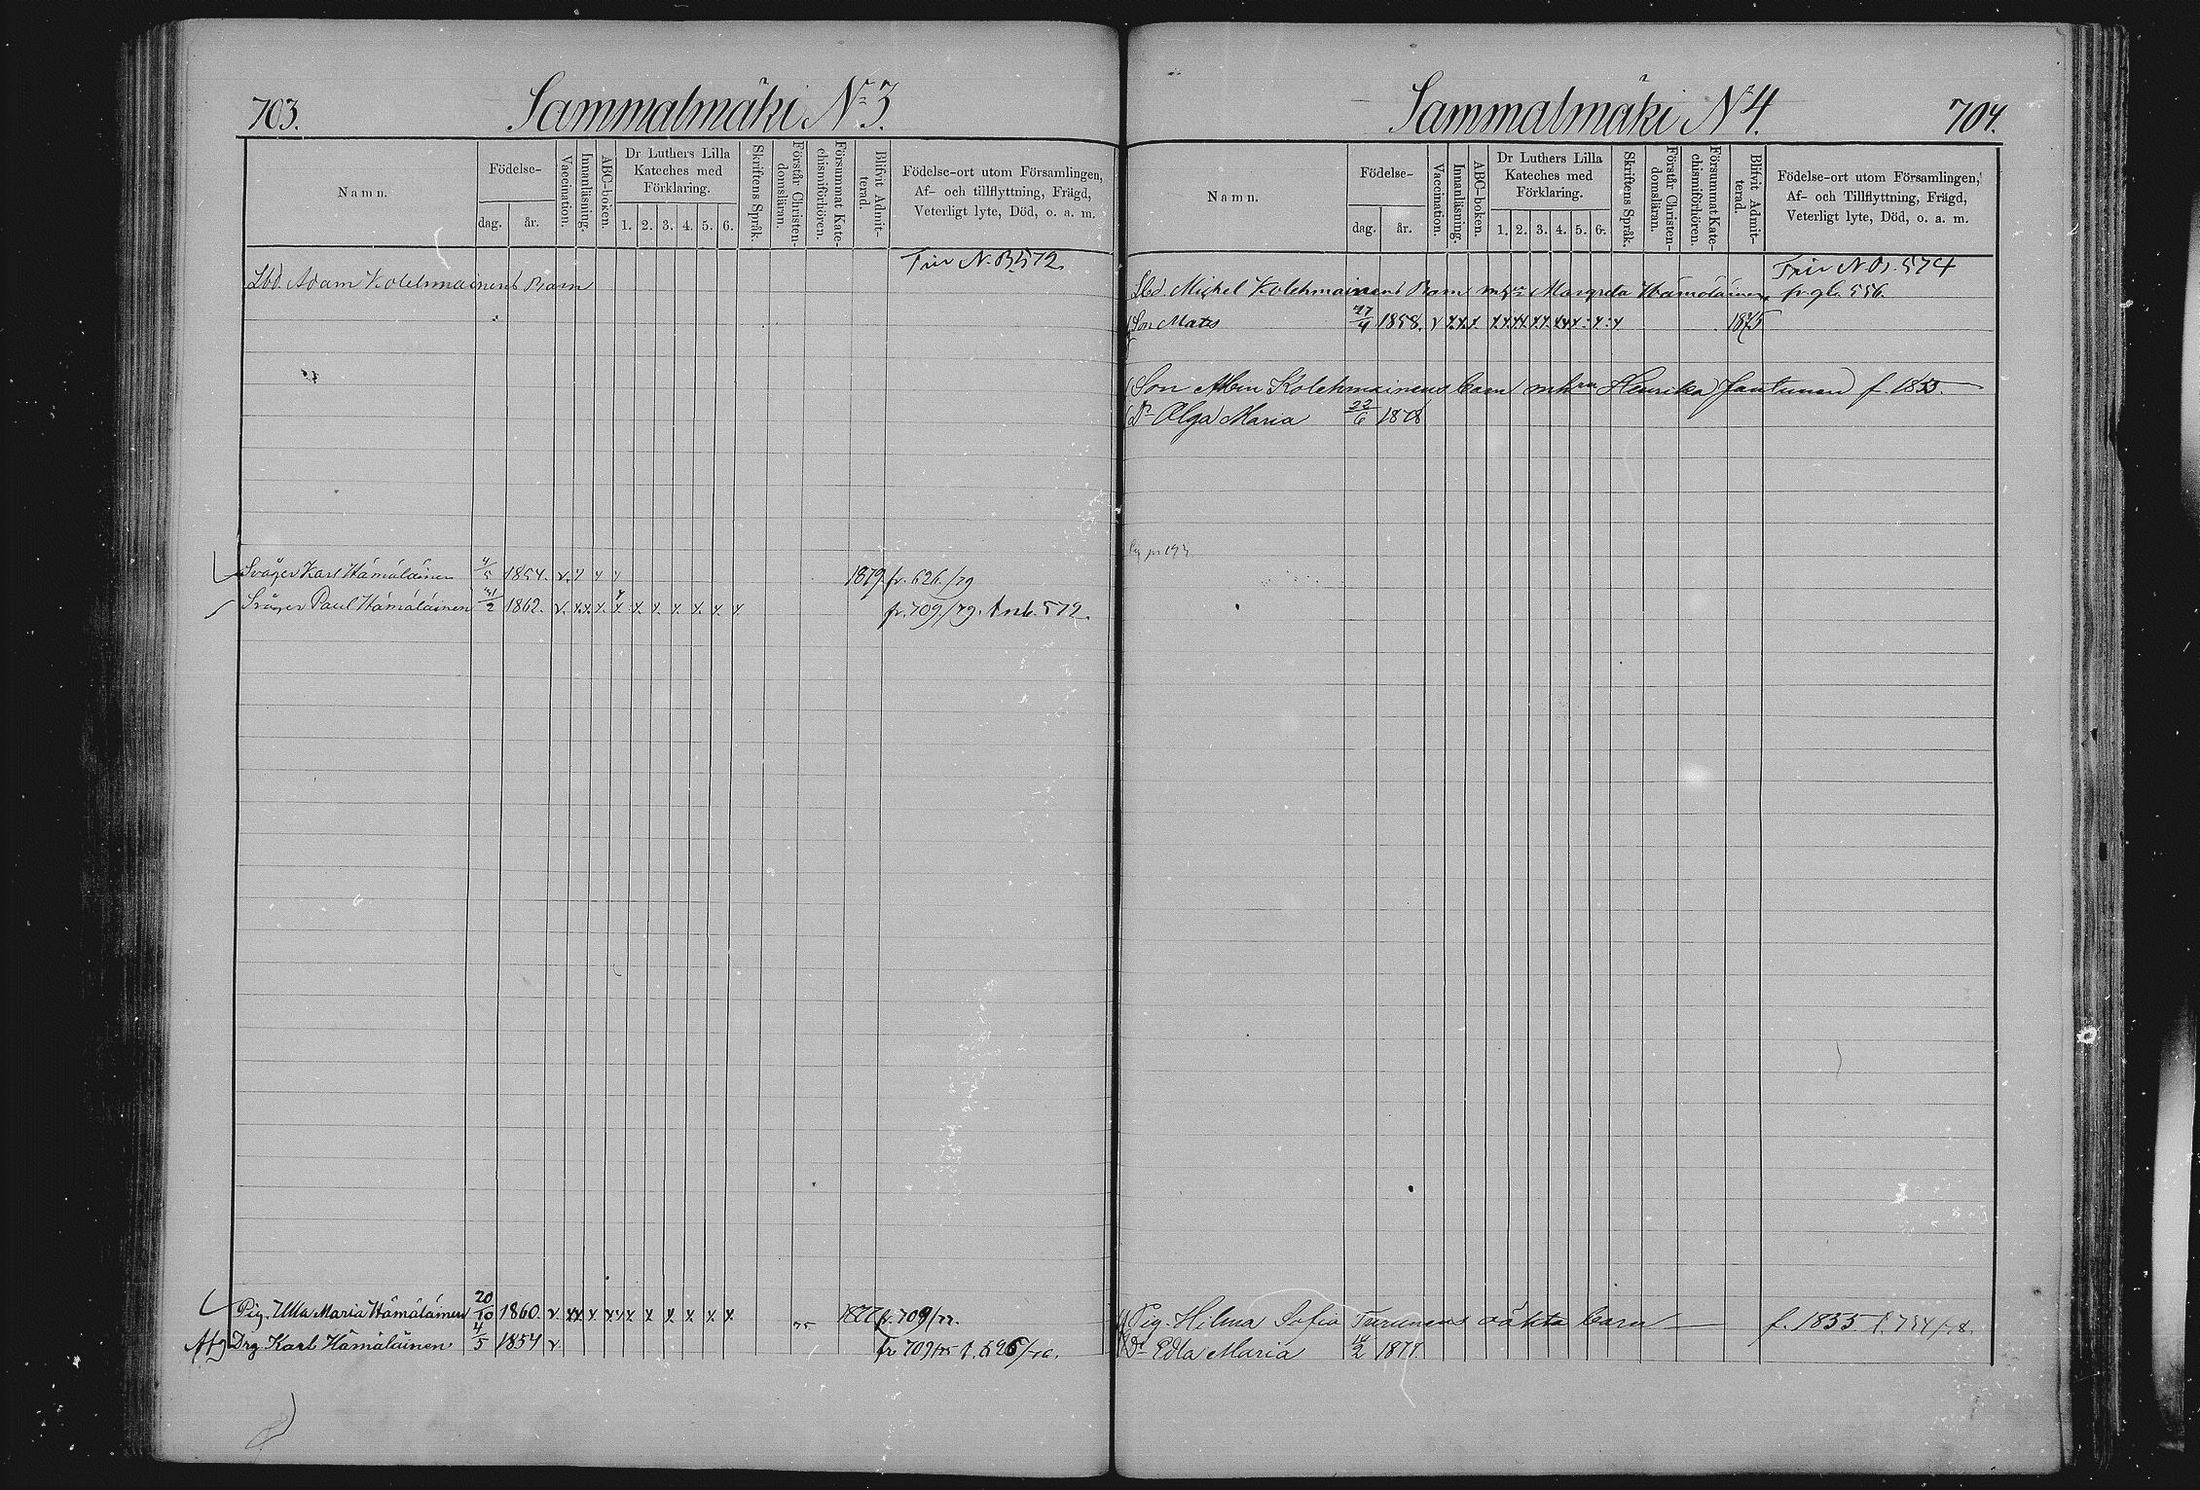 703.
Sammalmäki № 3.
Namn.
Födelse-
dag.
år.
Vaccination.
Innanläsning.
ABC-boken.
Dr Luthers Lilla
Kateches med
Förklaring.
1. 2. 3. 4. 5. 6.
Skriftens Språk.
Förstår Christen-
domsläran.
Försummat Kate-
chismiförhören.
Blifvit Admit-
terad.
Födelse-ort utom Församlingen,
Af- och tillflyttning, Frägd,
Veterligt lyte, Död, o. a. m.
N. B. 572
Lbd. Adam Kolehmainens Barn
Svåger Karl Hämäläinen 4/5 1854. 1879 fr. 626/79
Svåger Paul Hämäläinen /2 1862. fr. 709/79. 572.
Pig. Ulla Maria Hämäläinen 20/10 1860. 1877 fr. 709/77.
Afg Drg Karl Hämäläinen 4/5 1854 fr 709/75 f. 626/76.
Sammalmäki N 4.
704.
Namn.
Födelse-
dag.
år.
Vaccination.
Innanläsning.
ABC-boken.
Dr Luthers Lilla
Kateches med
Förklaring.
1. 2. 3. 4. 5. 6.
Skriftens Språk.
Förstår Christen-
domsläran.
Försummat Kate-
chismiförhören.
Blifvit Admit-
terad.
Födelse-ort utom Församlingen,
Af- och Tillflyttning, Frägd,
Veterligt lyte, Död, o. a. m.
574
Lbd. Michel Kolehmainens Barn Margreta Hämäläinen fr. gl. 556.
Son Mats /4 1858. 1875
Son Kolehmainens barn Henrika Jantunen f. 1855.
Dr Olga Maria 22/6 1878
Pig. Hilma Sofia Turunens oäkta barn f. 1855 f. 754/78.
Dr Edla Maria /2 1877.